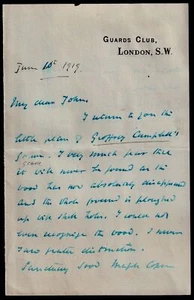 GUARDS CLUB,
LONDON, S.W.
June 1st 1919.
My dear John.
I return to you the
little plan of Geoffrey Campbell's
grave. I very much fear that
it will never be found as the
wood has now absolutely disappeared
and the whole ground is ploughed
up with shell holes. I could not
even recognise the wood. I never
saw greater destruction.
Sanctuary Wood Maple Copse